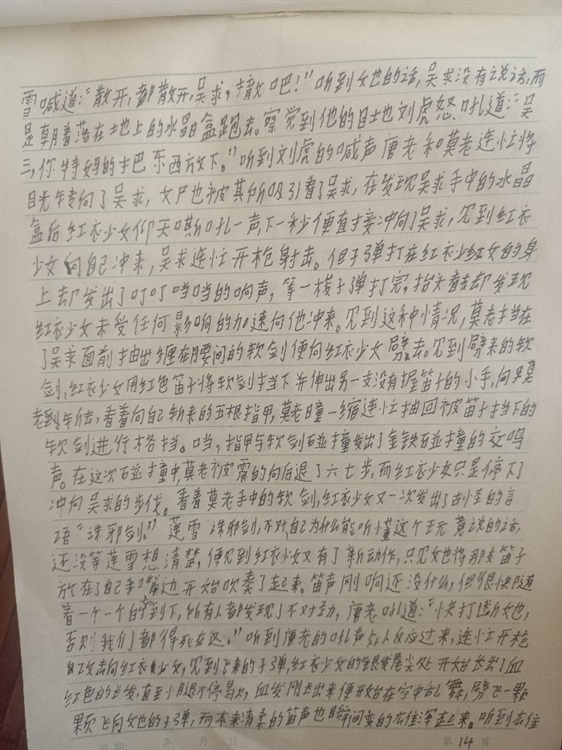 雪喊道:“散开,都散开,吴求,撤吧!”听到她的话,吴求没有说话,而
是朝着落在地上的水晶盒跑去。察觉到他的目地刘虎怒吼道:“吴
三,你特妈的把东西放下。”听到刘虎的喊声唐老和莫老连忙将
目光转向了吴求,女尸也被其所吸引看了吴求,在发现吴求手中的水晶
盒后红衣少女仰天嘶吼一声,下一秒便直接冲向了吴求,见到红衣
少女向自己冲来,吴求连忙开枪射击。但子弹打在红衣少红女的身
上却发出了叮叮当当的响声,等一梭子弹打完,抬头看去却发现
红衣少女未受任何影响的加速向他冲来。见到这种情况,莫老挡在
了吴求面前抽出缠在腰间的软剑便向红衣少女劈去。见到劈来的软
剑,红衣少女用红色笛子将软剑挡下并伸出另一支没有握笛子的小手,向莫
老刺去,看着向自己刺来的五根指甲,莫老瞳一缩连忙抽回被笛子挡下的
软剑进行格挡。当,指甲与软剑碰撞发出了金铁碰撞的交鸣
声。在这次碰撞中,莫老被震的向后退了六七步,而红衣少女只是停下了
冲向吴求的步伐。看着莫老手中的软剑,红衣少女又一次发出了古怪的言
语“诛邪剑。”莲雪 诛邪剑,不对自己为什么能听懂这个王元 说的话,
还没等莲雪想清楚,便见到红衣少女又有了新动作,只见她将那支笛子
放在了自己嘴边开始吹奏了起来。笛声刚响还没什么,但很快随
着一个一个的倒下,所有人都发现了不对劲,唐老吼道:“快打断她,
否则我们都得死在这。”听到唐老的吼声众人反应过来,连忙开枪
攻击向红衣少女,见到飞来的子弹,红衣少女的发尾尖处开始长出血
红色的长发,直至小腿才停,血发刚长出来便开始在空中乱舞,劈飞一颗
颗飞向她的子弹,而本来清柔的笛声也瞬间变的起来。听到
年 月 日 第14頁